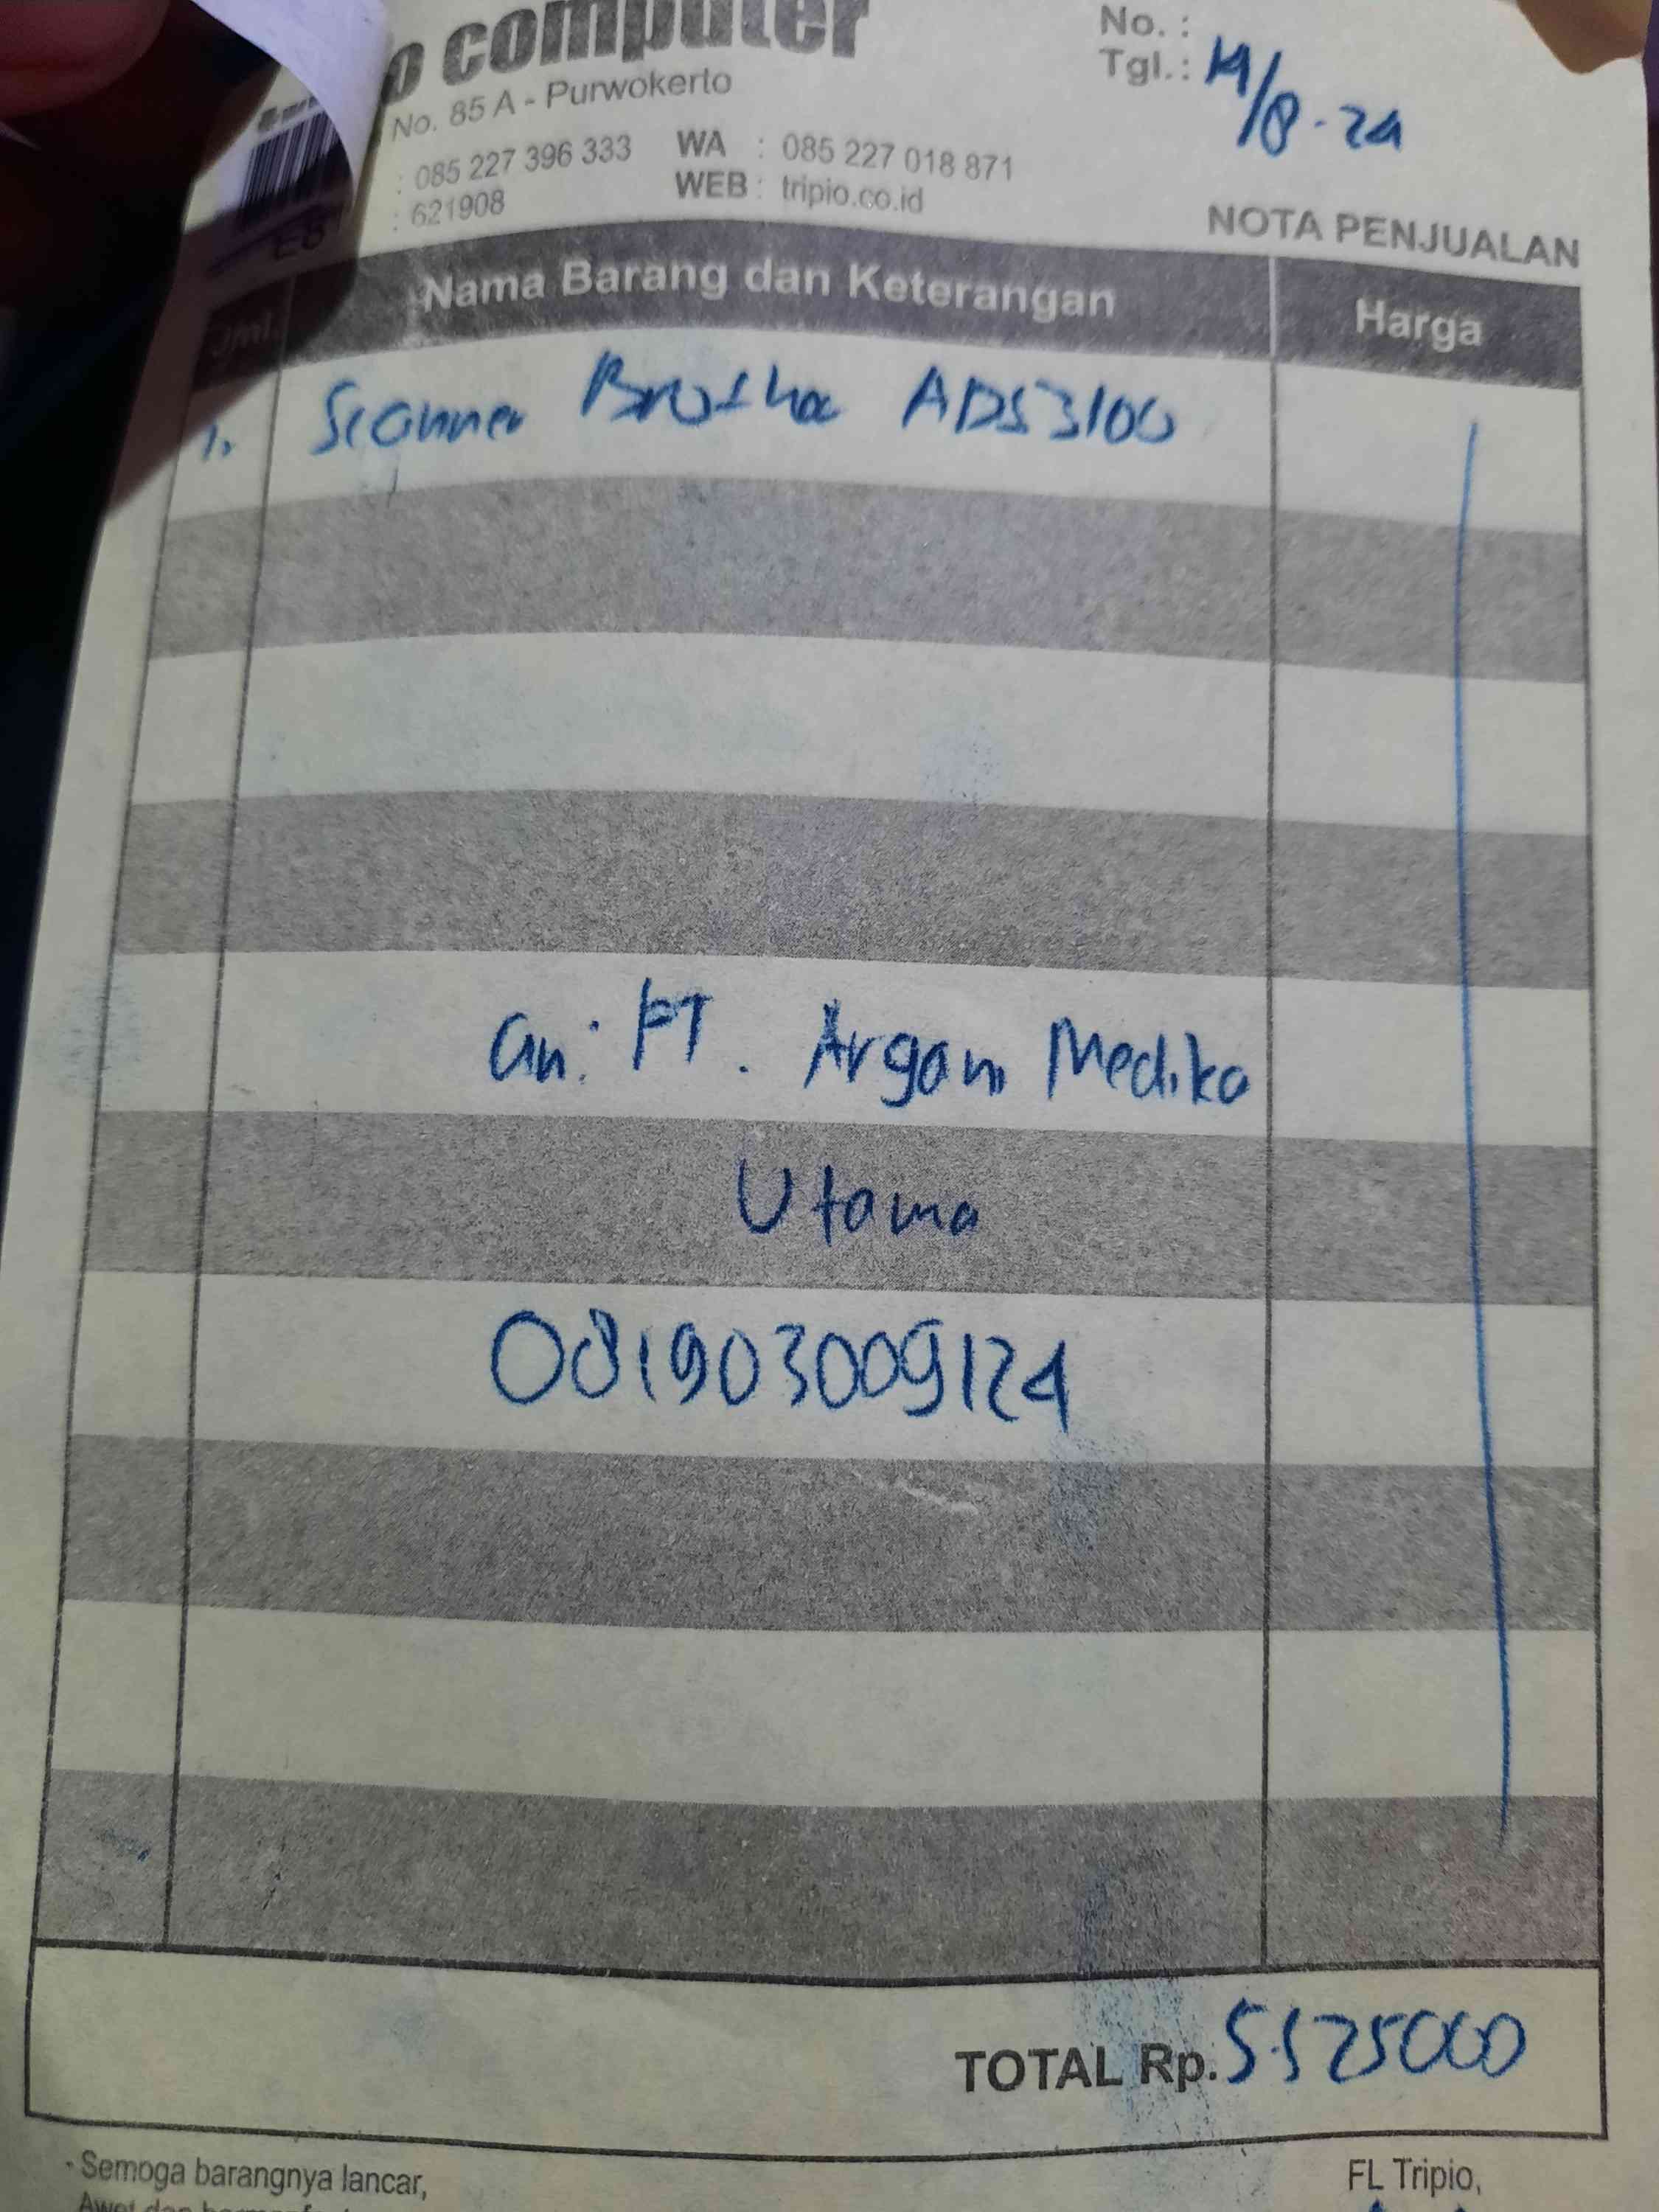 computer
No. :
Tgl.: 14/8-24
No. 85 A - Purwokerto
: 085 227 396 333 WA : 085 227 018 871
: 621908 WEB : tripio.co.id
NOTA PENJUALAN
Jml. Nama Barang dan Keterangan Harga
1. Scanner Brother ADS3100
an: PT. Argani Medika
Utama
081903009124
TOTAL Rp. 5.525000
- Semoga barangnya lancar,
FL Tripio,